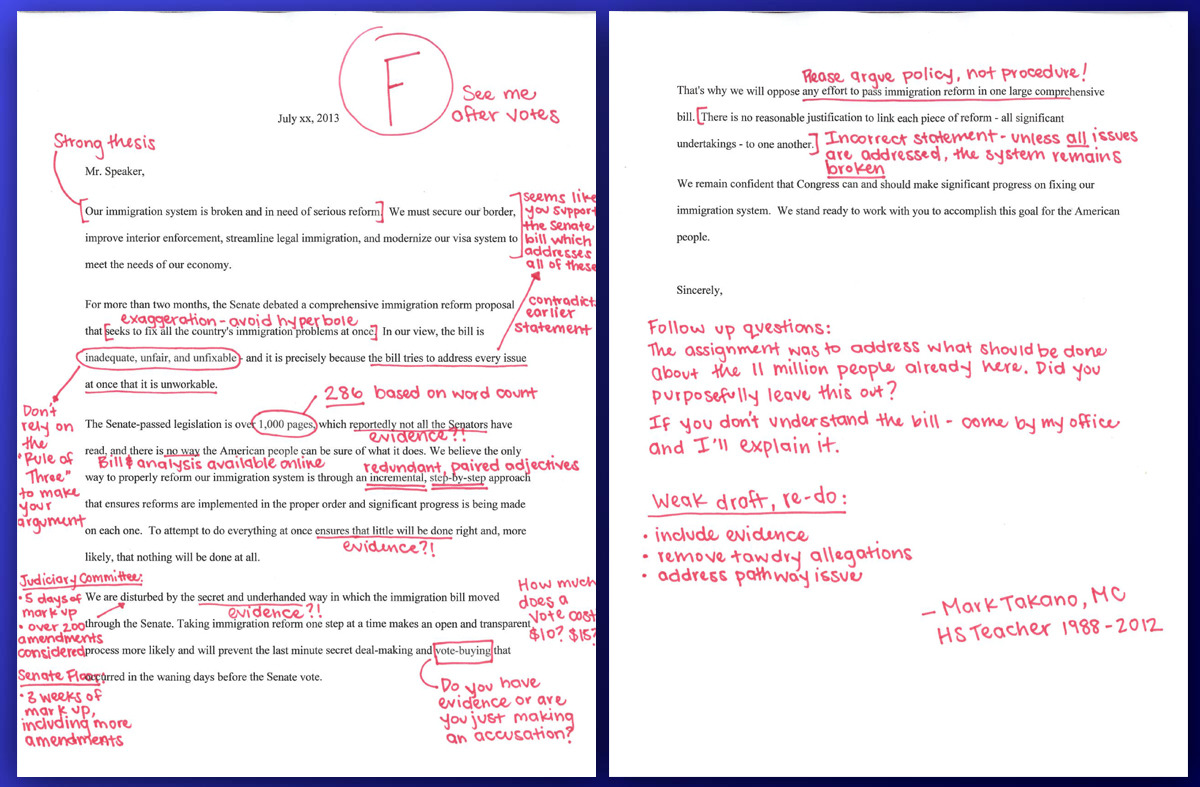 F
See me
after votes
July xx, 2013
Strong thesis
Mr. Speaker,
[Our immigration system is broken and in need of serious reform.] We must secure our border,
improve interior enforcement, streamline legal immigration, and modernize our visa system to
meet the needs of our economy.
seems like
you support
the Senate
bill which
addresses
all of these
For more than two months, the Senate debated a comprehensive immigration reform proposal
exaggeration - avoid hyperbole
that [seeks to fix all the country's immigration problems at once.] In our view, the bill is
inadequate, unfair, and unfixable - and it is precisely because the bill tries to address every issue
at once that it is unworkable.
contradict
earlier
statement
286 based on word count
Don't
rely on
the
"Rule of
Three"
to make
your
argument
The Senate-passed legislation is over 1,000 pages, which reportedly not all the Senators have
evidence?!
read, and there is no way the American people can be sure of what it does. We believe the only
Bill & analysis available online
redundant, paired adjectives
way to properly reform our immigration system is through an incremental, step-by-step approach
that ensures reforms are implemented in the proper order and significant progress is being made
on each one. To attempt to do everything at once ensures that little will be done right and, more
evidence?!
likely, that nothing will be done at all.
Judiciary Committee:
• 5 days of
mark up
• over 200
amendments
considered
We are disturbed by the secret and underhanded way in which the immigration bill moved
evidence?!
through the Senate. Taking immigration reform one step at a time makes an open and transparent
process more likely and will prevent the last minute secret deal-making and vote-buying that
occurred in the waning days before the Senate vote.
How much
does a
vote cost
$10? $15?
Senate Floor:
• 3 weeks of
mark up,
including more
amendments
Do you have
evidence or are
you just making
an accusation?
Please argue policy, not procedure!
That's why we will oppose any effort to pass immigration reform in one large comprehensive
bill. [There is no reasonable justification to link each piece of reform - all significant
undertakings - to one another.]
Incorrect statement - unless all issues
are addressed, the system remains
broken
We remain confident that Congress can and should make significant progress on fixing our
immigration system. We stand ready to work with you to accomplish this goal for the American
people.
Sincerely,
Follow up questions:
The assignment was to address what should be done
about the 11 million people already here. Did you
purposefully leave this out?
If you don't understand the bill - come by my office
and I'll explain it.
Weak draft, re-do:
• include evidence
• remove tawdry allegations
• address pathway issue
- Mark Takano, MC
HS Teacher 1988-2012